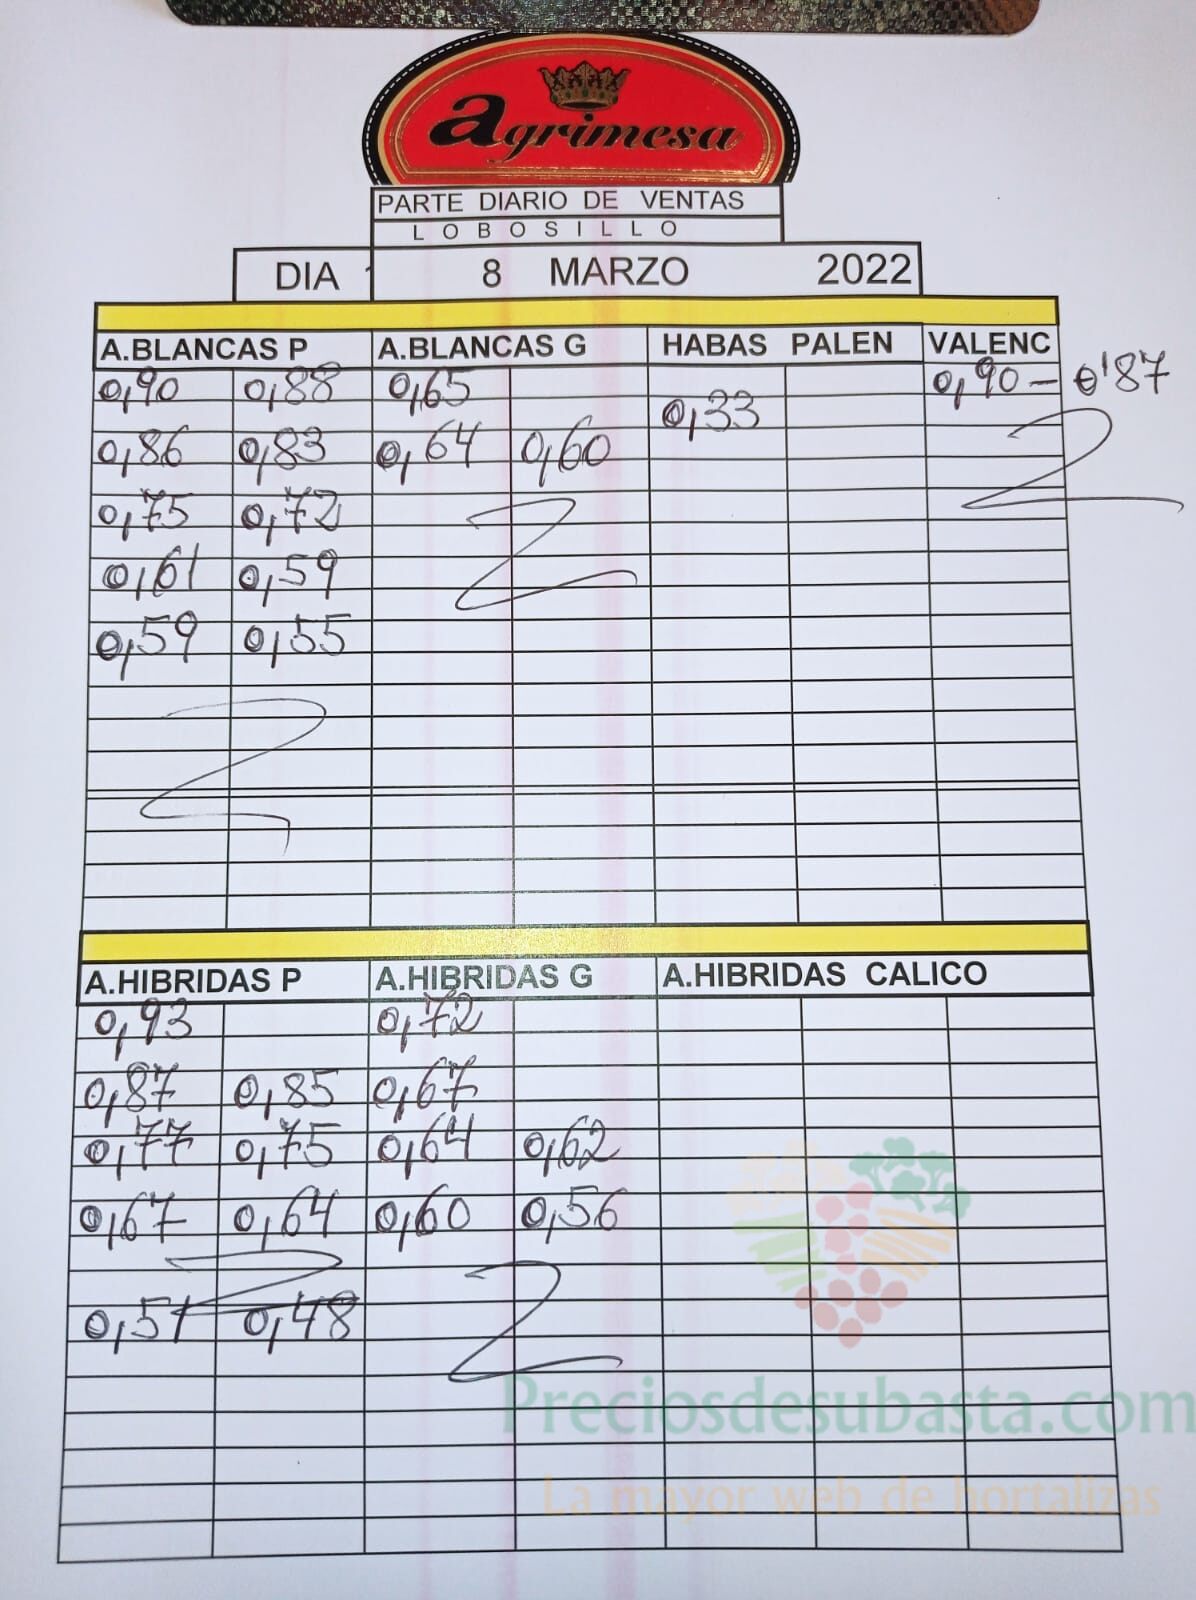 agrimesa
PARTE DIARIO DE VENTAS
LOBOSILLO
DIA 8 MARZO 2022
A.BLANCAS P A.BLANCAS G HABAS PALEN VALENC
0,90 0,88 0,65 0,33 0,90 - 0'87
0,86 0,83 0,64 0,60
0,75 0,72
0,61 0,59
0,59 0,55
A.HIBRIDAS P A.HIBRIDAS G A.HIBRIDAS CALICO
0,93 0,72
0,87 0,85 0,67
0,77 0,75 0,64 0,62
0,67 0,64 0,60 0,56
0,51 0,48
Preciosdesubasta.com
La mayor web de hortalizas